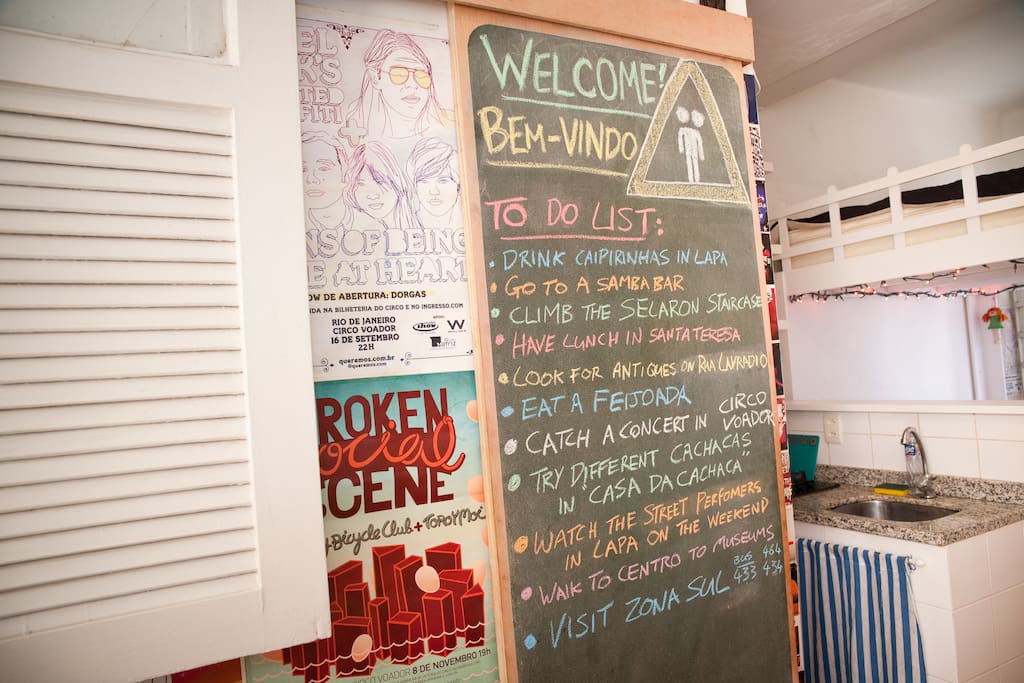 EL
K'S
TED
FITI
+
NS OF BEING
E AT HEART
OW DE ABERTURA: DORGAS
IDA NA BILHETERIA DO CIRCO E NO INGRESSO.COM
RIO DE JANEIRO
CIRCO VOADOR
16 DE SETEMBRO
22H
queremos.com.br
@queremos.com
ROKEN
ocial
CENE
Bicycle Club + TOPO Y MOI
CIRCO VOADOR 8 DE NOVEMBRO 19h
WELCOME!
BEM-VINDO
TO DO LIST:
• DRINK CAIPIRINHAS IN LAPA
• GO TO A SAMBA BAR
• CLIMB THE SELARON STAIRCASE
• HAVE LUNCH IN SANTA TERESA
• LOOK FOR ANTIQUES ON RUA LAVRADIO
• EAT A FEIJOADA
• CATCH A CONCERT IN CIRCO VOADOR
• TRY DIFFERENT CACHACAS
IN "CASA DA CACHACA"
• WATCH THE STREET PERFOMERS
IN LAPA ON THE WEEKEND
• WALK TO CENTRO TO MUSEUMS
• VISIT ZONA SUL BUS 464
433 434